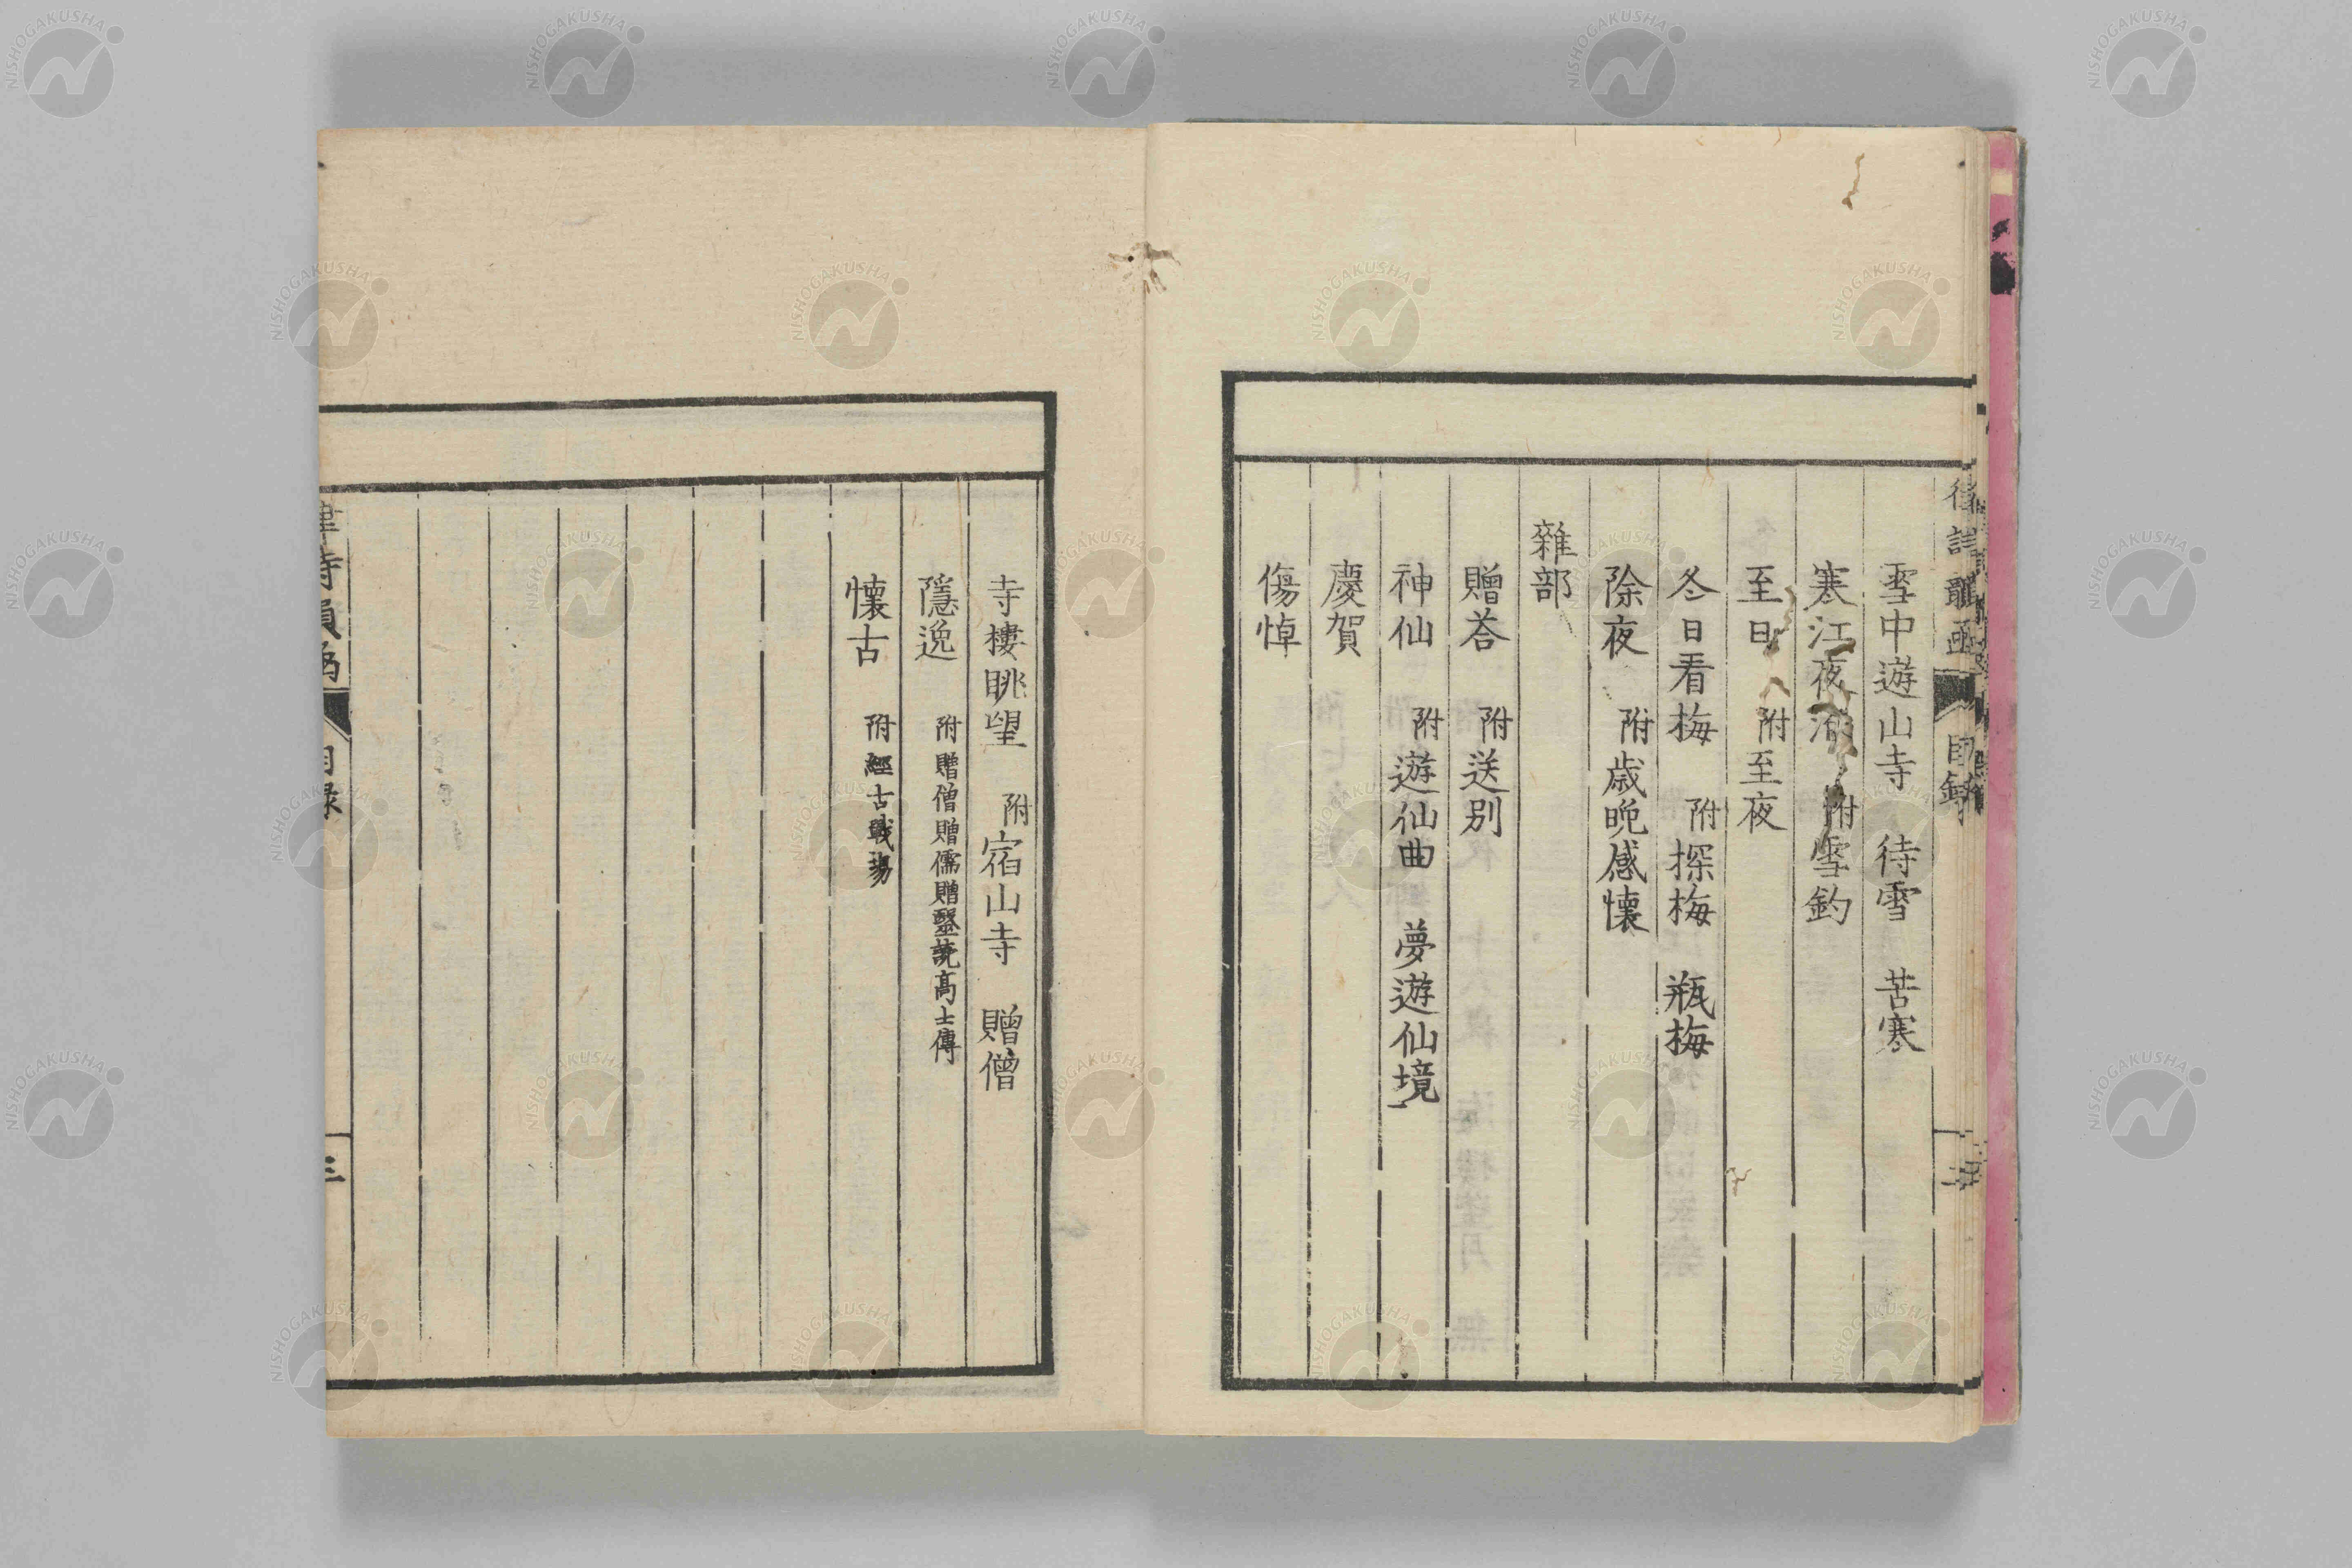 雪中遊山寺　待雪　苦寒
寒江夜泊　附雪釣
至日　附至夜
冬日看梅　附探梅　瓶梅
除夜　附歳晩感懐
雜部
贈荅　附送别
神仙　附遊仙曲　夢遊仙境
慶賀
傷悼
寺樓眺望　附宿山寺　贈僧
隱逸　附贈僧贈儒贈毉讀高士傳
懐古　附經古戰場
律詩韻函　目録　三
NISHOGAKUSHA